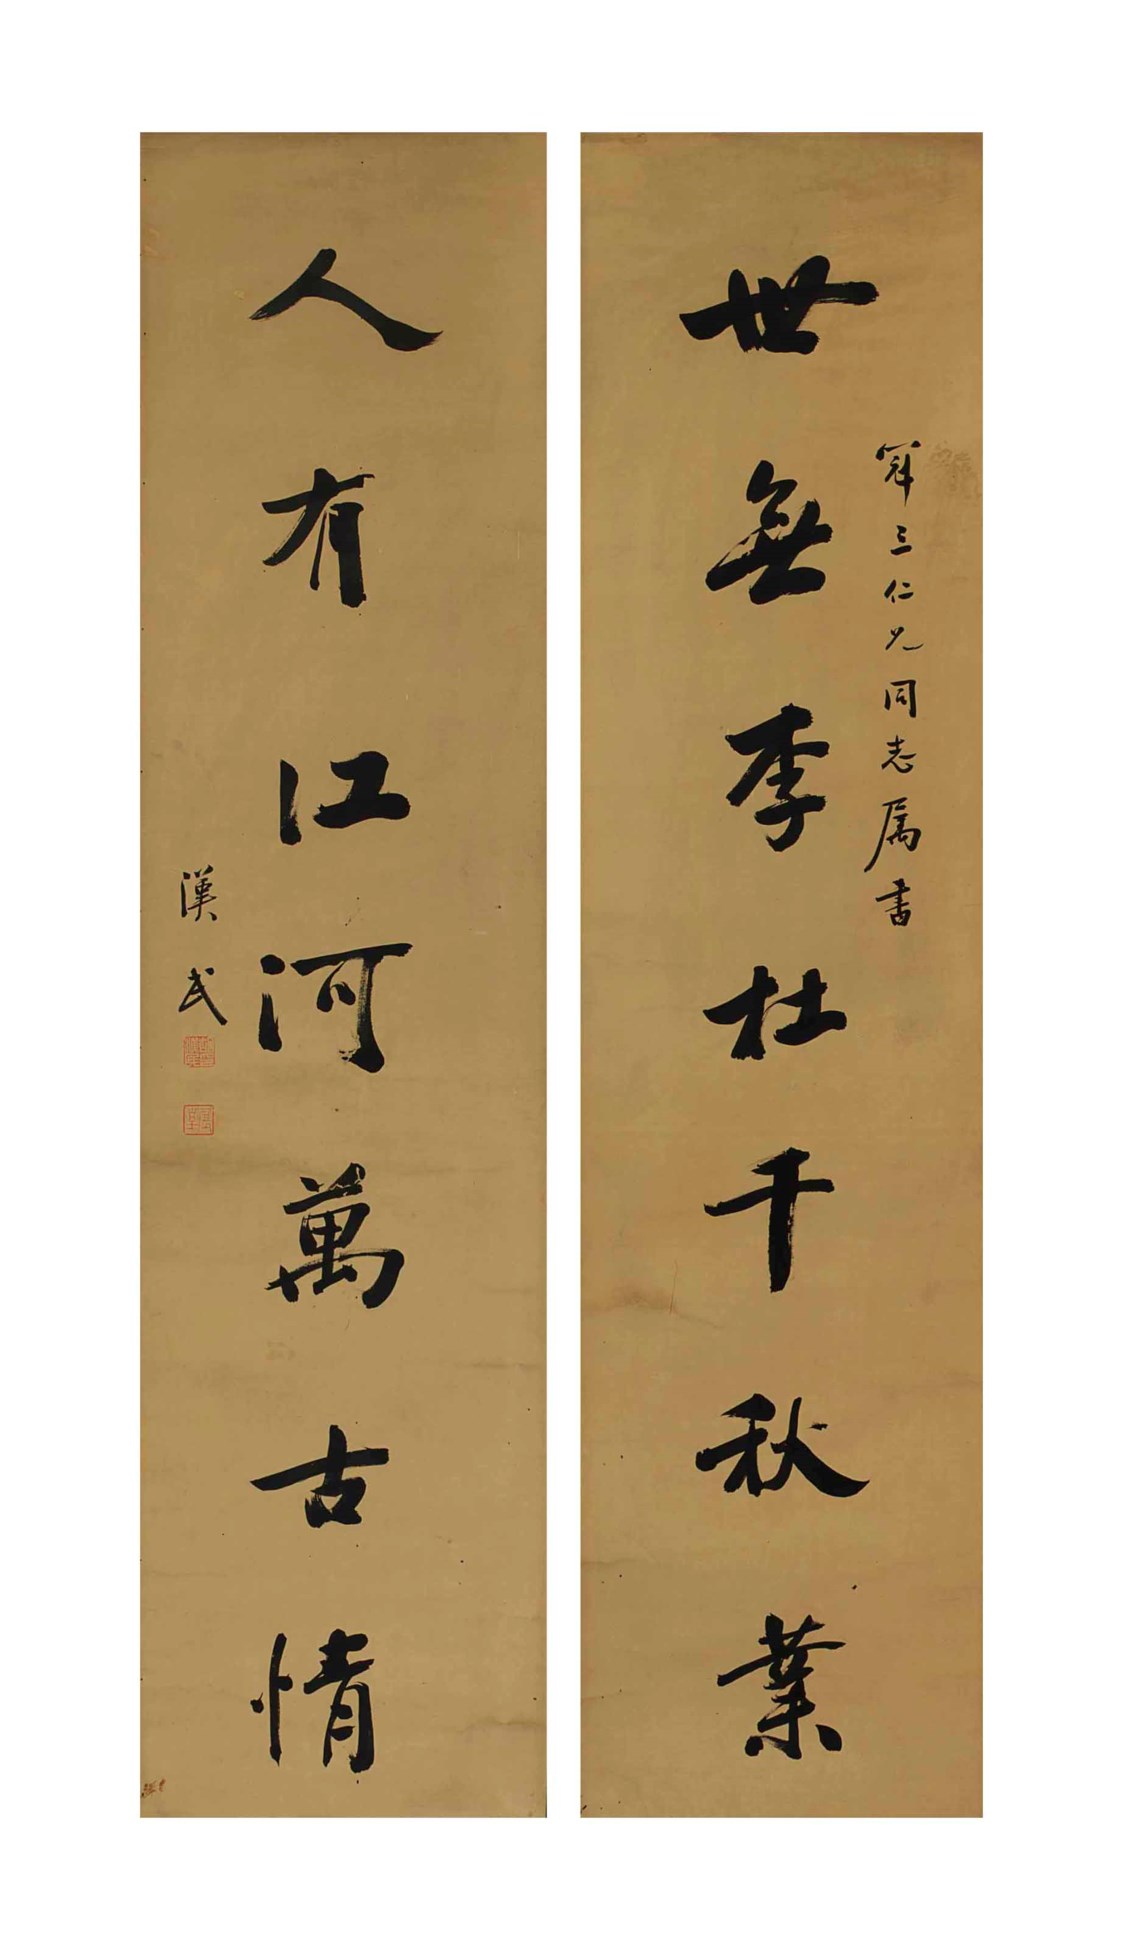 世無李杜千秋業
冠三仁兄同志属书
人有江河萬古情
漢民